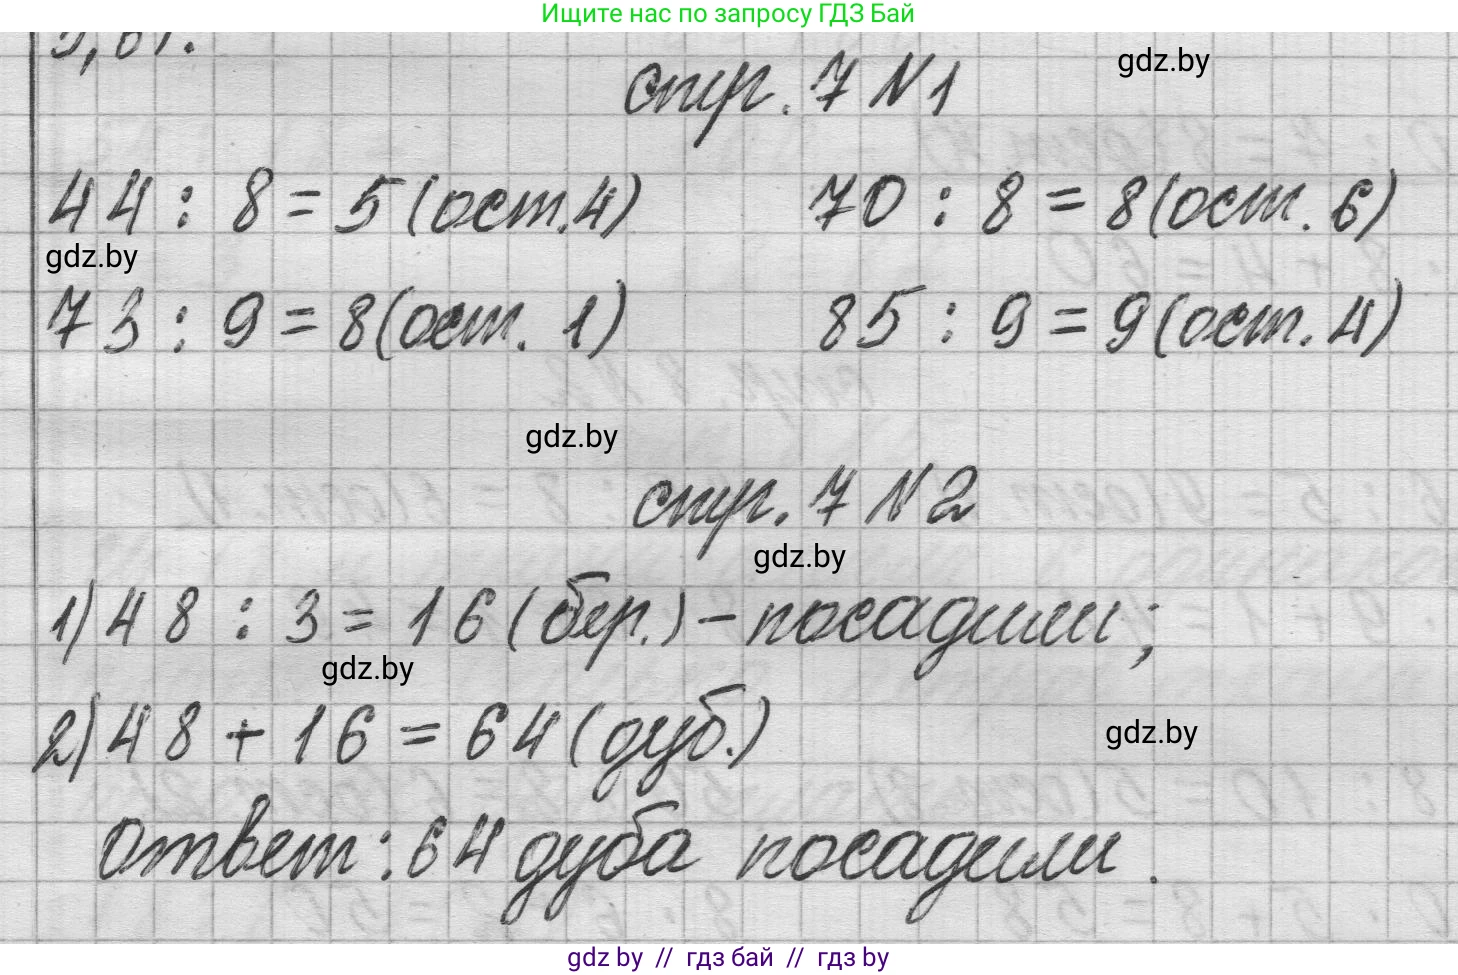 Ищите нас по запросу ГДЗ Бай
стр. 7 N1
gdz.by
44 : 8 = 5 (ост.4) 70 : 8 = 8 (ост. 6)
gdz.by
73 : 9 = 8 (ост. 1) 85 : 9 = 9 (ост. 4)
gdz.by
стр. 7 N2
gdz.by
1) 48 : 3 = 16 (бер.) - посадили;
gdz.by
2) 48 + 16 = 64 (дуб.)
gdz.by
ответ: 64 дуба посадили.
gdz by // гдз бай // гдз by